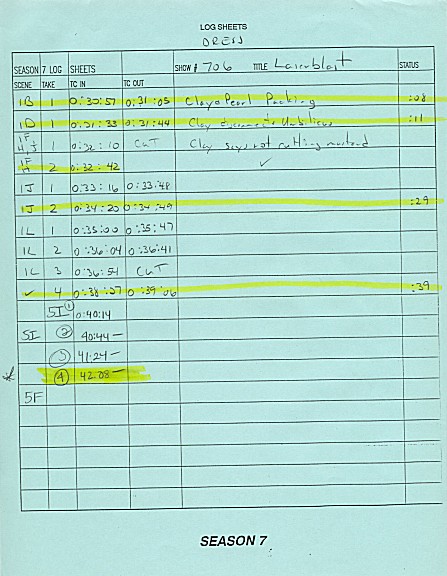 LOG SHEETS
DRESS
SEASON 7 LOG SHEETS SHOW # 706 TITLE Laserblast STATUS
SCENE TAKE TC IN TC OUT
1B 1 0:30:57 0:31:05 Clay & Pearl Packing :08
1D 1 0:31:33 0:31:44 Clay disconnects Umbilicus :11
1F 1 0:32:10 CUT Clay says not cutting mustard
1F 2 0:32:42 ✓
1J 1 0:33:16 0:33:48
1J 2 0:34:20 0:34:49 :29
1L 1 0:35:00 0:35:47
1L 2 0:36:04 0:36:41
1L 3 0:36:54 CUT
✓ 4 0:38:27 0:39:06 :39
5I ① 0:40:14
5I ② 40:44 —
③ 41:24 —
* ④ 42:08 —
5F
SEASON 7